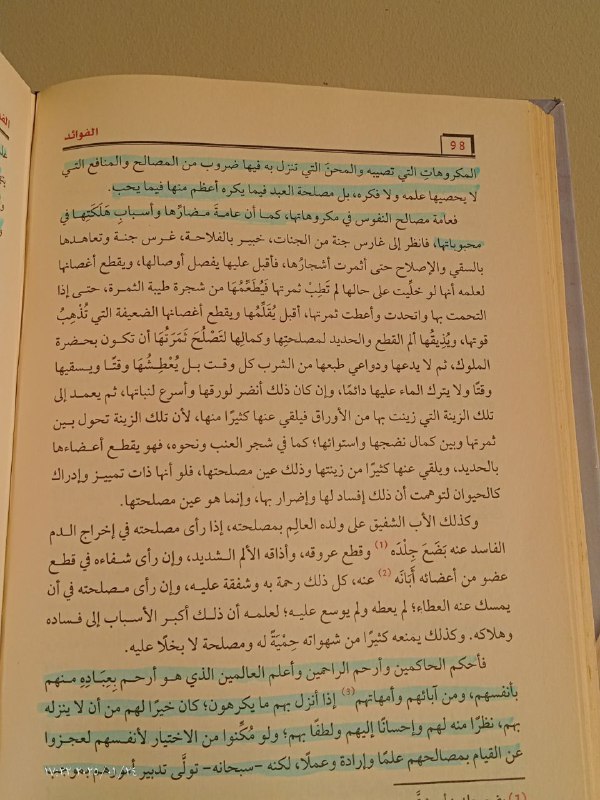 98
الفوائد
المكروهات التي تصيبه والمحن التي تنزل به فيها ضروب من المصالح والمنافع التي
لا يحصيها علمه ولا فكره، بل مصلحة العبد فيما يكره أعظم منها فيما يحب.
فعامة مصالح النفوس في مكروهاتها، كما أن عامة مضارها وأسباب هَلَكَتِهـا في
محبوباتها، فانظر إلى غارس جنة من الجنات، خبير بالفلاحة، غرس جنة وتعاهدها
بالسقي والإصلاح حتى أثمرت أشجارُها، فأقبل عليها يفصل أوصالها، ويقطع أغصانها
لعلمه أنها لو خلِّيت على حالها لم تَطِبْ ثمرتها فَيُطَعِّمُهَا من شجرة طيبة الثمـرة، حتـى إذا
التحمت بها واتحدت وأعطت ثمرتها، أقبل يُقَلِّمُها ويقطع أغصانها الضعيفة التي تُذْهِبُ
قوتها، ويُذِيقُها ألم القطع والحديد لمصلحتها وكمالِها لتَصْلُحَ ثَمَرَتُهَا أن تكـون بحضرة
الملوك، ثم لا يدعها ودواعي طبعها من الشرب كل وقت بـل يُعْطِشُـهَا وقتًـا ويسقيها
وقتًا ولا يترك الماء عليها دائمًا، وإن كان ذلك أنضر لورقها وأسرع لنباتها، ثم يعمـد إلى
تلك الزينة التي زينت بها من الأوراق فيلقي عنها كثيرًا منها، لأن تلك الزينة تحول بـين
ثمرتها وبين كمال نضجها واستوائها؛ كما في شجر العنب ونحوه، فهو يقطـع أعـضاءها
بالحديد، ويلقي عنها كثيرًا من زينتها وذلك عين مصلحتها، فلو أنها ذات تمييـز وإدراك
كالحيوان لتوهمت أن ذلك إفساد لها وإضرار بها، وإنما هو عين مصلحتها.
وكذلك الأب الشفيق على ولده العالِم بمصلحته، إذا رأى مصلحته في إخراج الـدم
الفاسد عنه بَضَعَ جِلْدَه (1) وقطع عروقه، وأذاقه الألم الشديد، وإن رأى شفـاءه في قطـع
عضو من أعضائه أَبَانَه (2) عنه، كل ذلك رحمة به وشفقة عليـه، وإن رأى مـصلحته في أن
يمسك عنه العطاء؛ لم يعطه ولم يوسع عليـه؛ لعلمـه أن ذلـك أكبـر الأسبـاب إلى فسـاده
وهلاكه. وكذلك يمنعه كثيرًا من شهواته حِمْيَةً له ومصلحة لا بخلًا عليه.
فأحكم الحاكمين وأرحم الراحمين وأعلم العالمين الذي هـو أرحـم بِعِبَـادِهِ منـهم
بأنفسهم، ومن آبائهم وأمهاتهم (3) إذا أنزل بهم ما يكرهون؛ كان خيرًا لهم من أن لا ينزله
بهم، نظرًا منه لهم وإحسانًا إليهم ولطفًا بهم؛ ولو مُكِّنوا من الاختيار لأنفـسهم لعجـزوا
عن القيام بمصالحهم علمًا وإرادة وعملًا، لكنه -سبحانه- تولَّى تدبير أمورهم